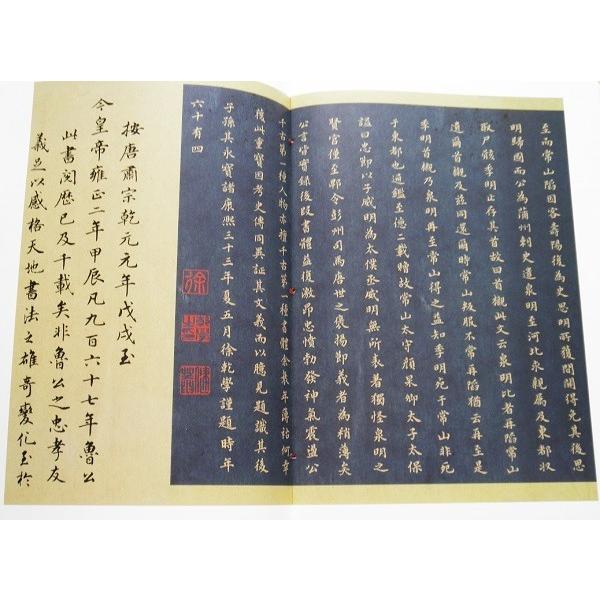 至而常山陷因客壽陽後為史思明所獲間關得免其後思
明歸國而公為蒲州刺史遣泉明至河北求親屬及東都收
取尸骸季明止存其首故曰首櫬此文云泉明比者再陷常山
遺爾首櫬及茲同還爾時常山叛服不常再陷猶云再至是
季明首櫬乃泉明再至常山得之益知季明死于常山非死
于東都也通鑑至德二載贈故常山太守顏杲卿太子太保
諡曰忠節以子威明為太僕丞威明無所表著獨怪泉明之
賢官僅至郫令彭州司馬唐世之褒揚節義者為稍薄矣
公言皆實錄後段書體益復激昂忠憤勃發神氣震盪公
千古第一種人物亦擅千古第一種書體余衰年薄祜何幸
獲此重寶因考史傳同異証其文義而以臆見題識其後
子孫其永寶諸康熙三十三年夏五月徐乾學謹題時年
六十有四
徐
按唐肅宗乾元元年戊戌至
今皇帝雍正二年甲辰凡九百六十七年魯公
此書閱歷已及千載矣非魯公之忠孝友
義足以感格天地書法之雄奇變化至於